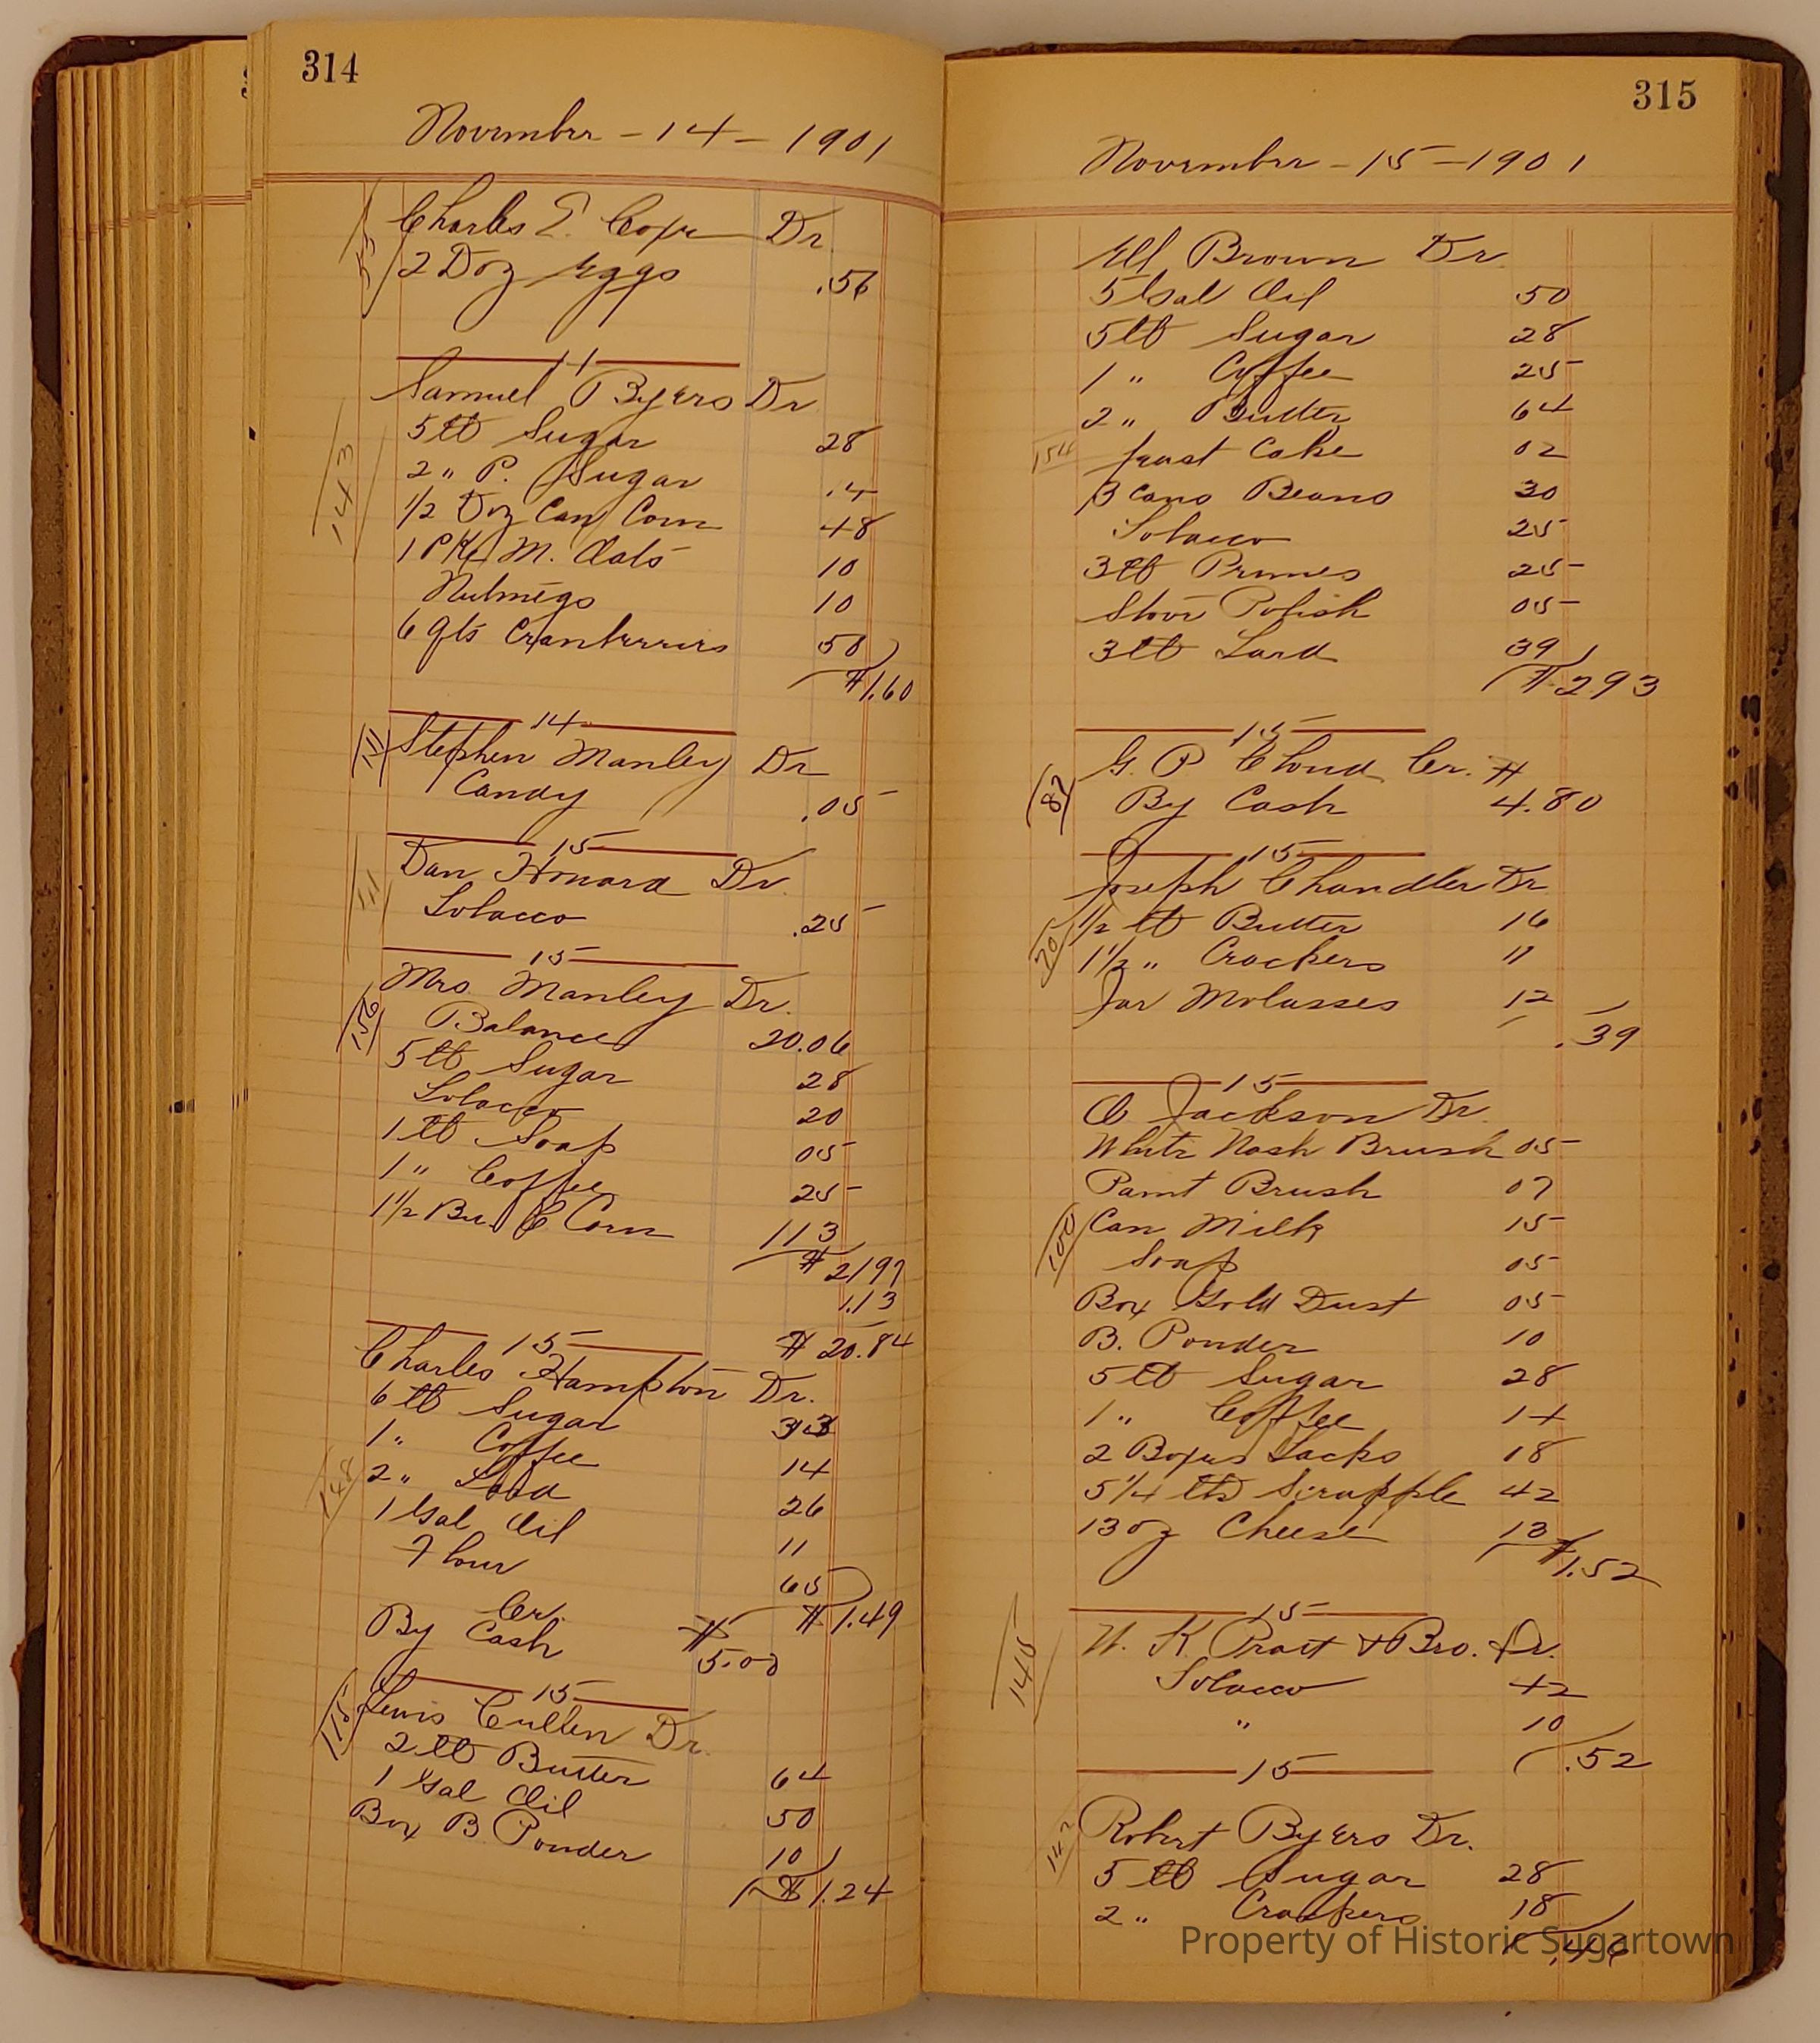 314
November - 14 - 1901
53
Charles E. Cope Dr
2 Doz Eggs .56
14
143
Samuel Byers Dr
5 lb Sugar 28
2 " P. Sugar .14
1/2 Doz Can Corn 48
1 Pkg M. Oats 10
Nutmegs 10
6 Qts Cranberries 50
$1.60
14
111
Stephen Manley Dr
Candy .05
15
111
Dan Howard Dr.
Tobacco .25
15
156
Mrs. Manley Dr.
Balance 20.06
5 lb Sugar 28
Tobacco 20
1 lb Soap 05
1 " Coffee 25
1 1/2 Bu. C Corn 113
$ 21 97
1.13
$ 20.84
15
148
Charles Hampton Dr.
6 lb Sugar 33
1 " Coffee 14
2 " Lard 26
1 Gal Oil 11
Flour 65
$1.49
Cr.
By Cash $ 5.00
15
115
Lewis Cullen Dr.
2 lb Butter 64
1 Gal Oil 50
Box B Powder 10
$1.24
315
November - 15 - 1901
Ell Brown Dr.
5 Gal Oil 50
5 lb Sugar 28
1 " Coffee 25
2 " Butter 64
154
Yeast Cake 02
3 cans Beans 30
Tobacco 25
3 lb Prunes 25
Stove Polish 05
3 lb Lard 39
$ 2.93
15
87
G. P Cloud Cr. $
By Cash 4.80
15
Joseph Chandler Dr
1/2 lb Butter 16
1 1/2 " Crackers 11
Jar Molasses 12
.39
15
C Jackson Dr.
White Wash Brush 05
Paint Brush 07
100
Can Milk 15
Soap 05
Box Gold Dust 05
B. Powder 10
5 lb Sugar 28
1 " Coffee 14
2 Boxes Tacks 18
5 1/4 lbs Scrapple 42
13 oz Cheese 13
$1.52
15
W. K. Pratt & Bro. Dr.
Tobacco 42
" 10
.52
15
142
Robert Byers Dr.
5 lb Sugar 28
2 " Crackers 18
.46
Property of Historic Sugartown